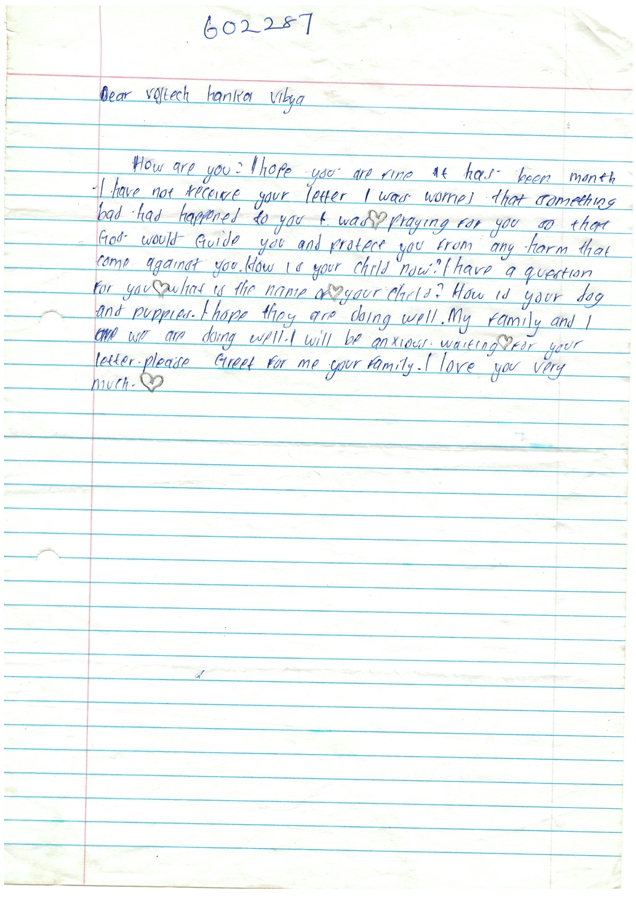 602287
Dear Vojtech hanka Vibya
How are you? I hope you are fine It has been month
I have not receive your letter I was worries that something
bad had happened to you I was praying for you so that
God would Guide you and protect you from any harm that
come against you. How is your child now? I have a question
for you what is the name of your child? How is your dog
and puppies. I hope they are doing well. My family and I
we are doing well. I will be anxious waiting for your
letter. please Greet for me your family. I love you very
much.